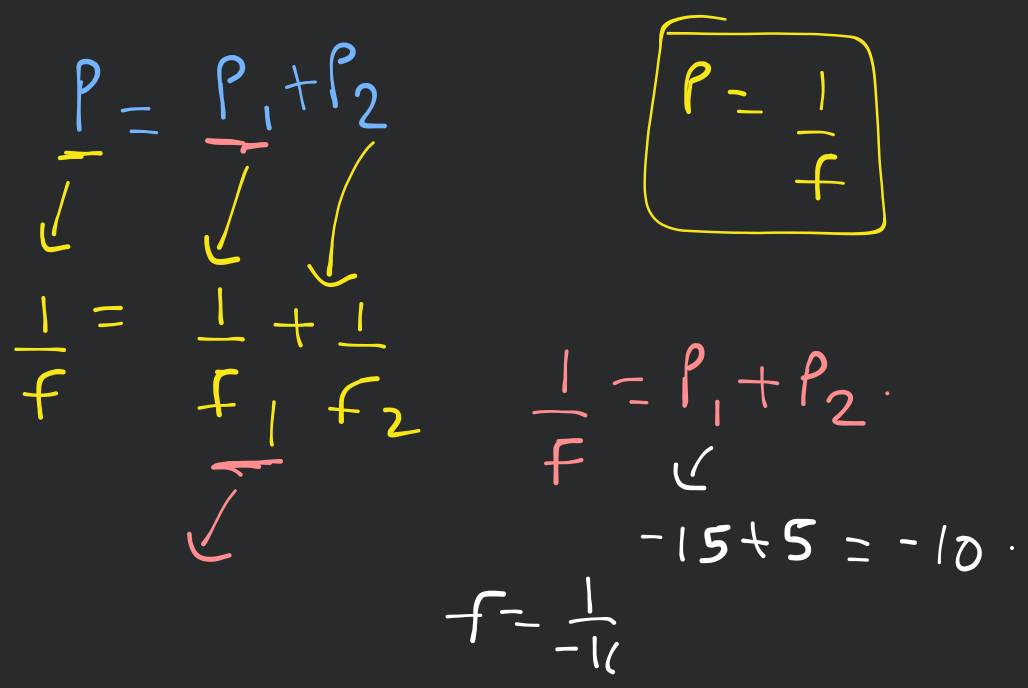 P = P₁ + P₂
P = 1/f
1/f = 1/f₁ + 1/f₂
1/F = P₁ + P₂.
-15 + 5 = -10.
f = 1/-1